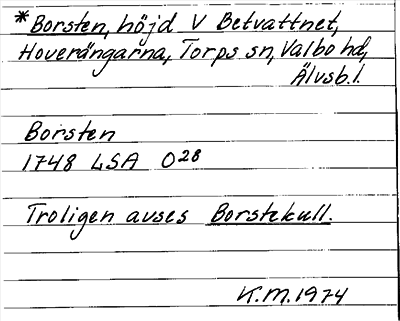 *Borsten, höjd V Betvattnet,
Hoverängarna, Torps sn, Valbo hd,
Älvsb.l.
Borsten
1748 LSA O28
Troligen avses Borstekull.
K.M. 1974